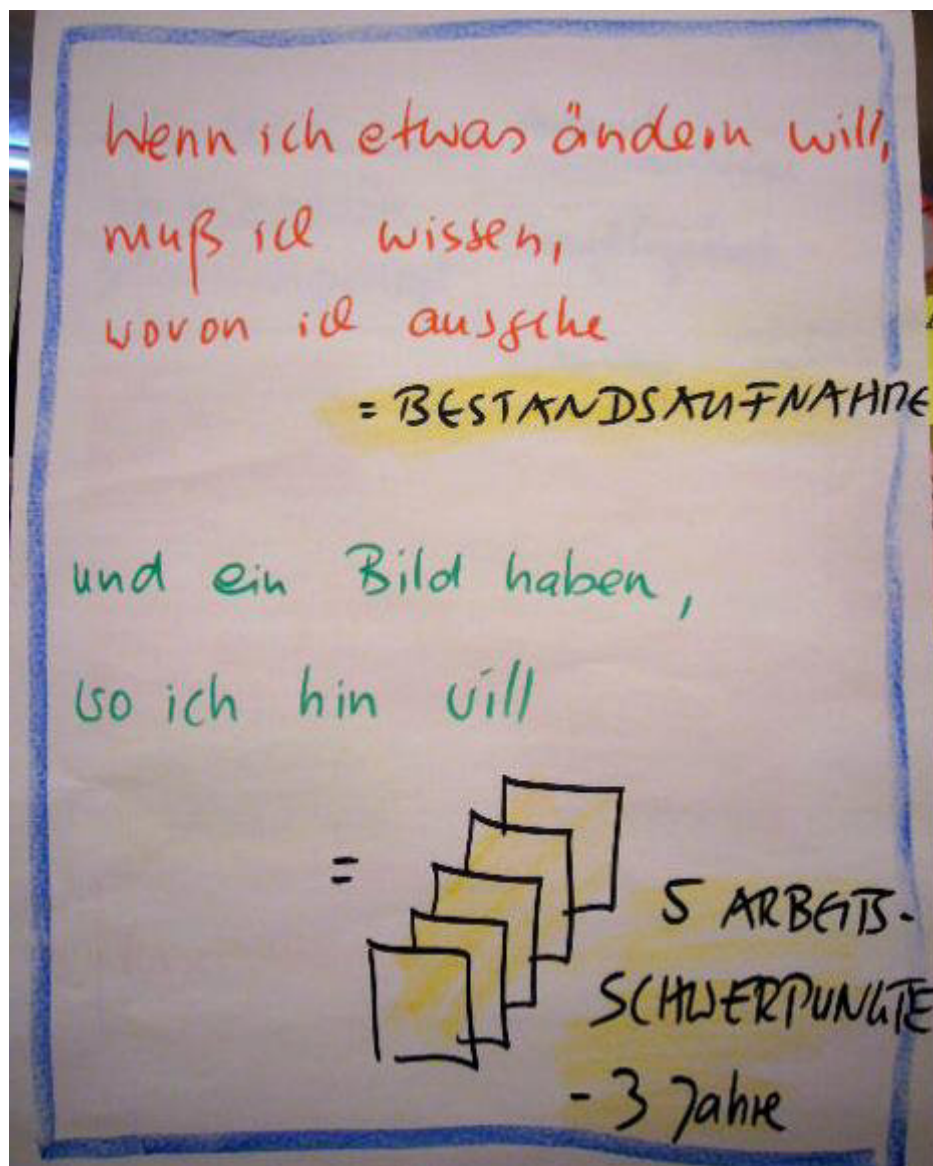 Wenn ich etwas ändern will,
muß ich wissen,
wovon ich ausgehe
= BESTANDSAUFNAHME
und ein Bild haben,
wo ich hin will
=
5 ARBEITS-
SCHWERPUNKTE
- 3 Jahre